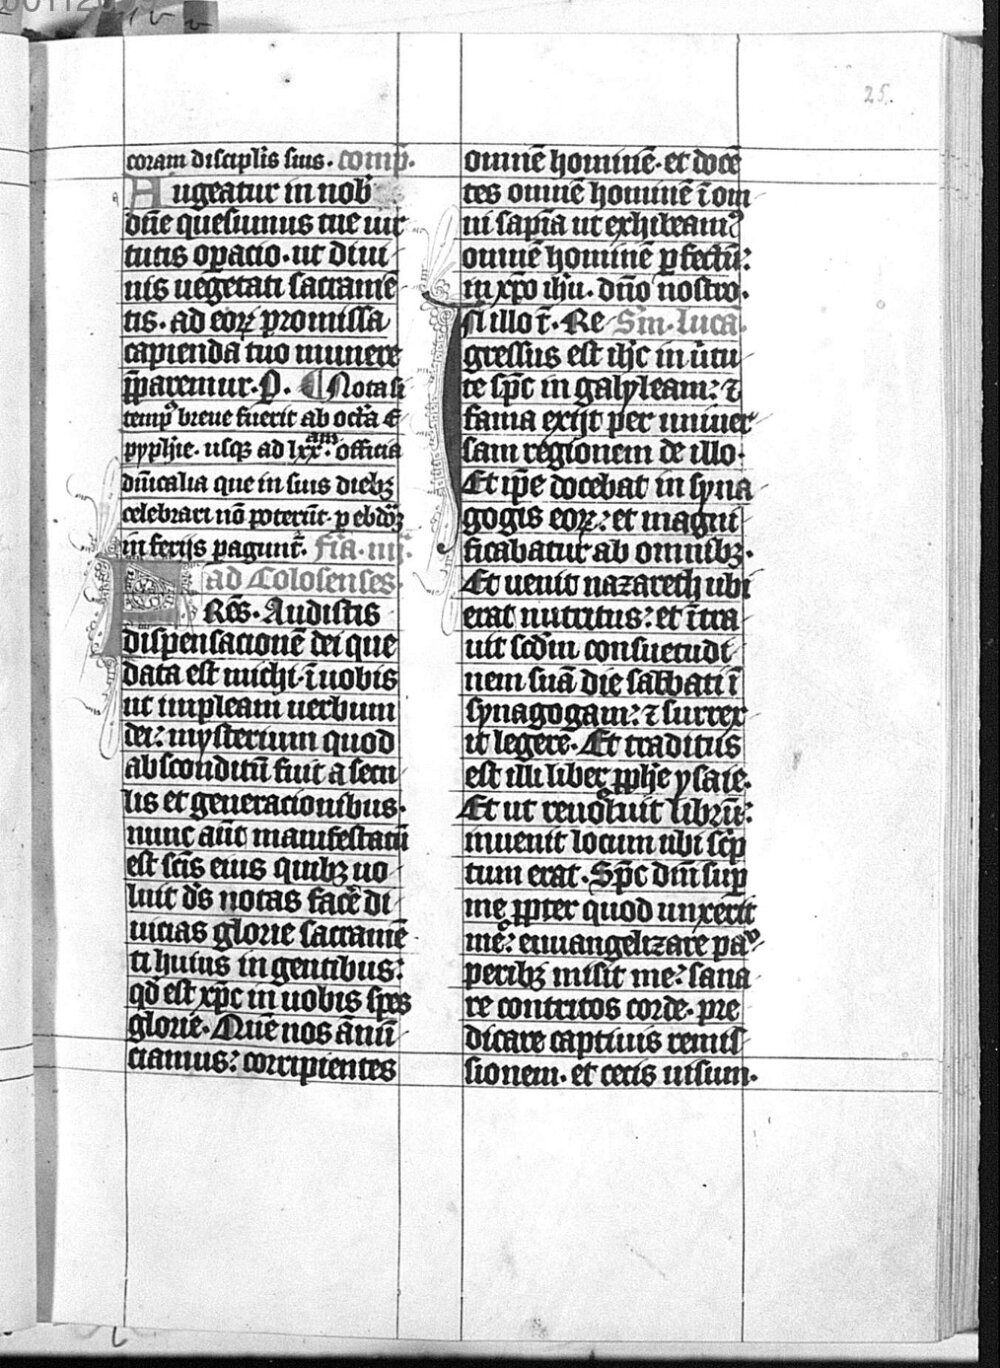 25.
coram discip̄lis suis. comp̄.
Augeatur in nob̄
dn̄e quesumus tue uir
tutis op̄acio. ut diui
nis uegetati sacramē
tis. ad eoꝝ promissa
capienda tuo munere
p̄paremur. P. ¶ Nota si
temp᷒ breue fuerit ab octa᷒ E
pyph̄ie. usq̄ ad lxx.am officia
dn̄icalia que in suis diebꝫ
celebrari nō poterūt. p ebdōꝫ
in ferijs pagunt᷑. Fīa. iiij.
ad Colosenses.
FRēs. Audistis
dispensacionē dei que
data est michi. ī uobis
ut impleam uerbum
dei: mysterium quod
absconditū fuit a secu
lis et generacionibus.
nunc aūt manifestatū
est sc̄is eius quibꝫ uo
luit ds̄ notas facē di
uicias glorie sacramē
ti huius in gentibus:
qd̄ est xp̄c in uobis spes
glorie. Quē nos ānū
ciamus: corripientes
omnē hominē. et docē
tes omnē hominē ī om
ni sapīa ut exhibeam᷒
omnē hominē pfectū:
in xp̄o ih̄u. dn̄o nostro.
IN illo t̄. Re Sm̄. Luca.
gressus est ih̄c in ūtu
te sp̄c in galyleam: ⁊
fama exijt per uniuer
sam regionem de illo.
Et ip̄e docebat in syna
gogis eoꝝ: et magni
ficabatur ab omnibꝫ.
Et uenit nazareth ubi
erat nutritus: et ītra
uit scd̄m consuetudi
nem suā die sabbati ī
synagogam: ⁊ surrex
it legere. Et traditus
est illi liber pph̄e ysaie.
Et ut reuoluit librū:
inuenit locum ubi sc̄p
tum erat. Sp̄c dn̄i sup̄
me ppter quod unxerit
me: euuangelizare pau
peribꝫ misit me: sana
re contritos corde. pre
dicare captiuis remis
sionem. et cecis uisum.